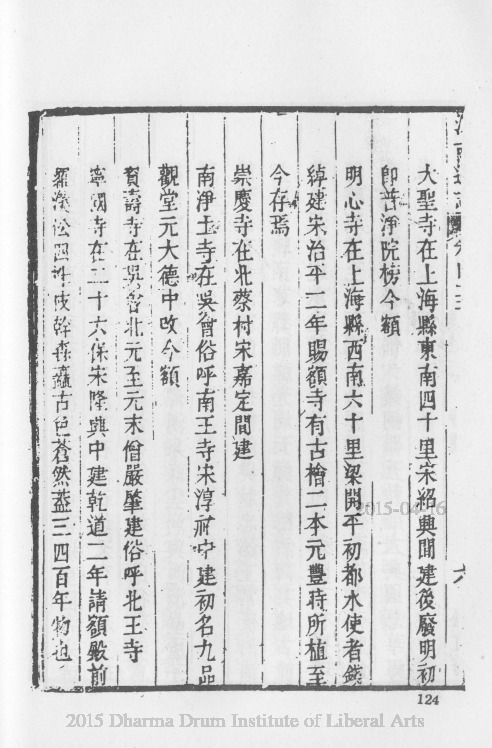 大聖寺在上海縣東南四十里宋紹興間建後廢明初
卽普淨院榜今額
明心寺在上海縣西南六十里梁開平初都水使者錢
綽建宋治平二年賜額寺有古檜二本元豐時所植至
今存焉
崇慶寺在北蔡村宋嘉定間建
南淨土寺在吳會俗呼南王寺宋淳祐中建初名九品
觀堂元大德中改今額
寶壽寺在吳會北元至元末僧嚴肇建俗呼北王寺
寧國寺在二十六保宋隆興中建乾道二年請額殿前
羅漢松四株皮幹森蠹古色蒼然葢三四百年物也
2015-04-16
124
2015 Dharma Drum Institute of Liberal Arts